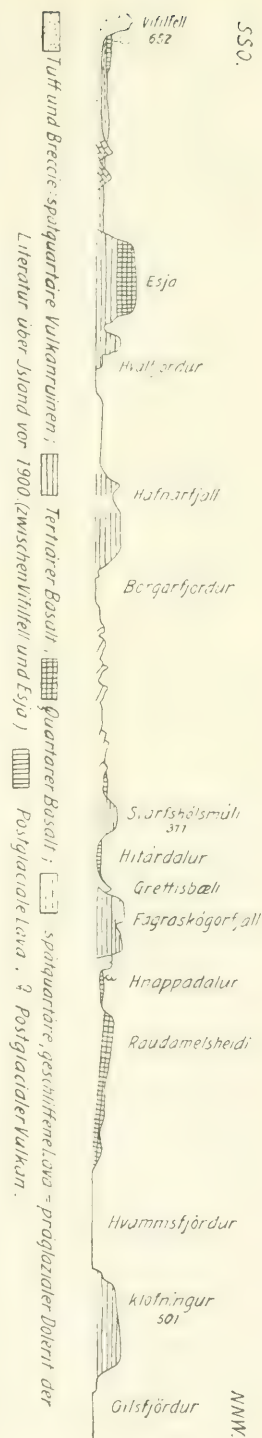 SSO.
Vifilfell
652
Esja
Hvalfjordur
Hafnarfjall
Borgarfjordur
311
Hitárdalur
Grettisbæli
Fagraskógorfjall
Hnappadalur
Raudamelsheidi
Hvammsfjördur
Klofningur
501
Gilsfjördur
NNW.
Tuff und Breccie: spätquartäre Vulkanruinen; Tertiärer Basalt, Quartärer Basalt; spätquartäre, geschliffene Lava = präglazialer Dolerit der
Literatur über Jsland vor 1900.(zwischen Vifilfell und Esja) Postglaciale Lava. ? Postglacialer Vulkan.